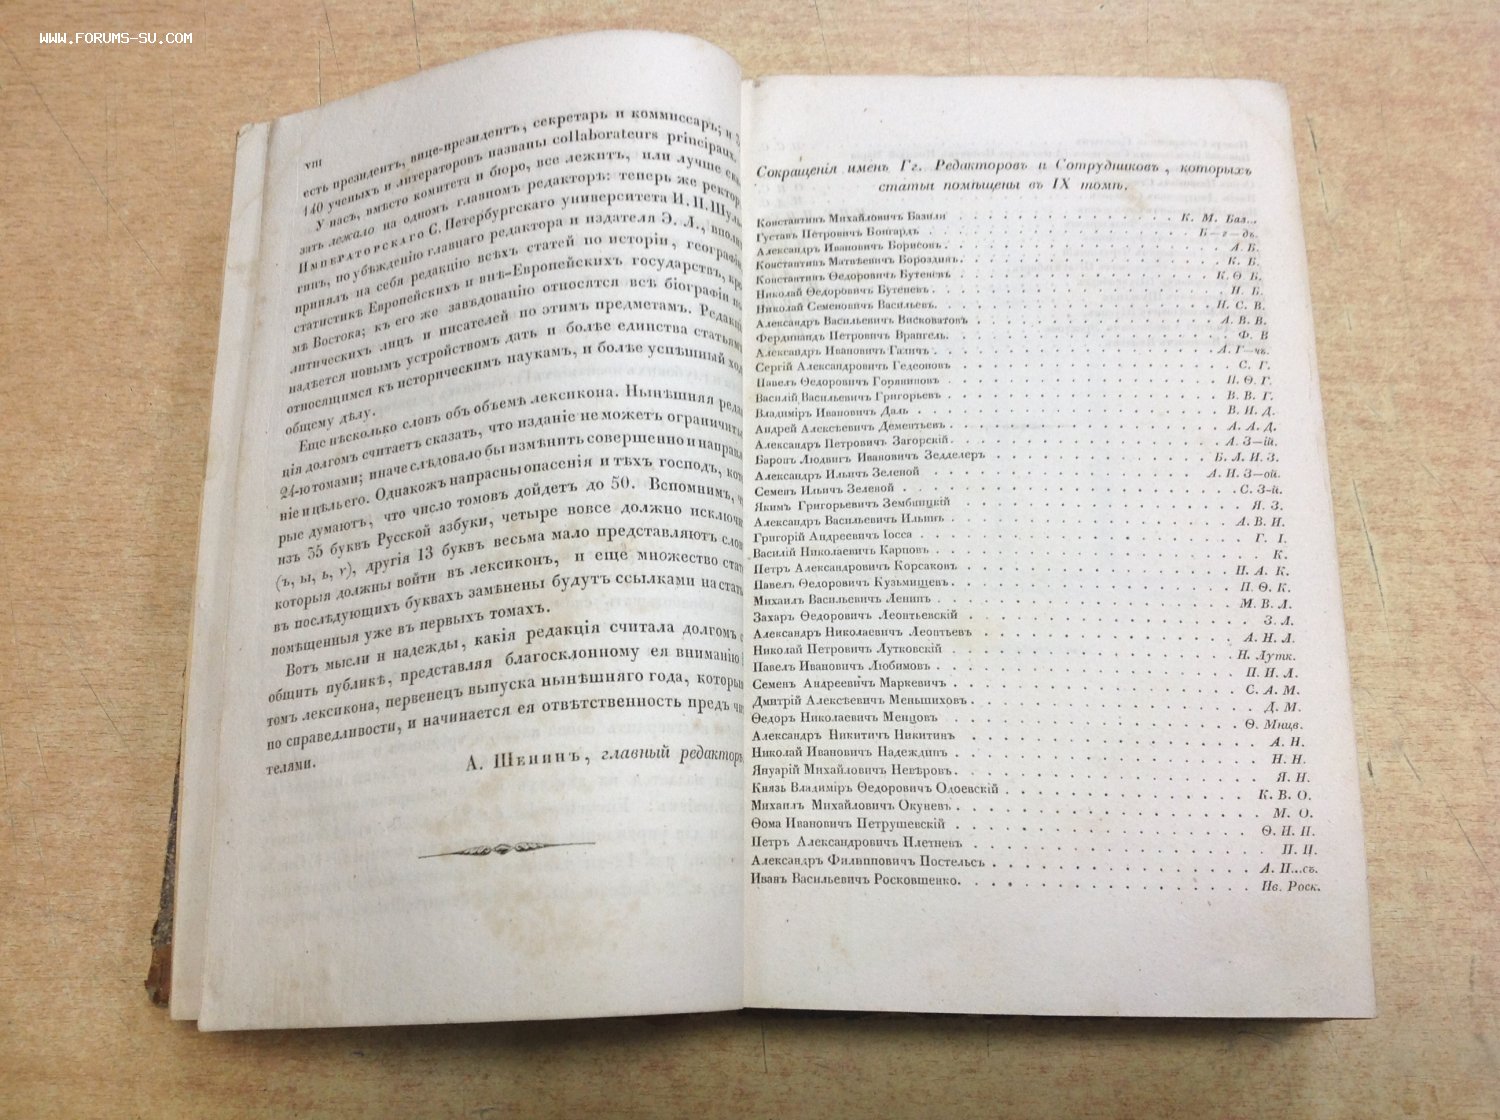 WWW.FORUMS-SU.COM
VIII
есть президентъ, вице-президентъ, секретарь и коммиссаръ; и
140 ученыхъ и литераторовъ названы collaborateurs principaux.
У насъ, вмѣсто комитета и бюро, все лежитъ, или лучше
зать лежало на одномъ главномъ редакторѣ: теперь же ректоръ
Императорскаго С. Петербургскаго университета И. П. Шуль
гинъ, по убѣжденію главнаго редактора и издателя Э. Л., вполнѣ
принялъ на себя редакцію всѣхъ статей по исторіи, географіи
статистикѣ Европейскихъ и внѣ-Европейскихъ государствъ,
мѣ Востока; къ его же завѣдованію относятся всѣ біографіи
литическихъ лицъ и писателей по этимъ предметамъ. Редакція
надѣется новымъ устройствомъ дать и болѣе единства статьямъ
относящимся къ историческимъ наукамъ, и болѣе успѣшный ходъ
общему дѣлу.
Еще нѣсколько словъ объ объемѣ лексикона. Нынѣшняя редак
ція долгомъ считаетъ сказать, что изданіе не можетъ ограничить
24-ю томами; иначе слѣдовало бы измѣнить совершенно и направле
ніе и цѣль его. Однакожъ напрасны опасенія и тѣхъ господъ, кото
рые думаютъ, что число томовъ дойдетъ до 50. Вспомнимъ,
изъ 35 буквъ Русской азбуки, четыре вовсе должно исключить
(ъ, ы, ь, ѵ), другія 13 буквъ весьма мало представляютъ словъ
которыя должны войти въ лексиконъ, и еще множество стат
въ послѣдующихъ буквахъ замѣнены будутъ ссылками на статьи
помѣщенныя уже въ первыхъ томахъ.
Вотъ мысли и надежды, какія редакція считала долгомъ
общить публикѣ, представляя благосклонному ея вниманію
томъ лексикона, первенецъ выпуска нынѣшняго года, которымъ
по справедливости, и начинается ея отвѣтственность предъ чи
телями.
А. Шенинъ, главный редакторъ
Сокращенія именъ Гг. Редакторовъ и Сотрудниковъ, которыхъ
статьи помѣщены въ IX томѣ.
Константинъ Михайловичъ Базили К. М. Баз...
Густавъ Петровичъ Бонгардъ Б—г—дъ.
Александръ Ивановичъ Борисовъ. А. Б.
Константинъ Матвѣевичъ Бороздинъ. К. Б.
Константинъ Ѳедоровичъ Бутеневъ К. Ѳ Б.
Николай Ѳедоровичъ Бутеневъ. Н. Б.
Николай Семеновичъ Васильевъ. Н. С. В.
Александръ Васильевичъ Висковатовъ А. В. В.
Фердинандъ Петровичъ Врангель. Ф. В
Александръ Ивановичъ Галичъ. А. Г—чъ.
Сергій Александровичъ Гедеоновъ С. Г.
Павелъ Ѳедоровичъ Горяниновъ П. Ѳ. Г.
Василій Васильевичъ Григорьевъ В. В. Г.
Владиміръ Ивановичъ Даль В. И. Д.
Андрей Алексѣевичъ Дементьевъ А. А. Д.
Александръ Петровичъ Загорскій. А. З—ій.
Баронъ Людвигъ Ивановичъ Зедделеръ Б. Л. И. З.
Александръ Ильичъ Зеленой А. И. З—ой.
Семенъ Ильичъ Зеленой С. З-й.
Якимъ Григорьевичъ Зембницкій Я. З.
Александръ Васильевичъ Ильинъ А. В. И.
Григорій Андреевичъ Іосса Г. І.
Василій Николаевичъ Карповъ К.
Петръ Александровичъ Корсаковъ П. А. К.
Павелъ Ѳедоровичъ Кузьмищевъ. П. Ѳ. К.
Михаилъ Васильевичъ Ленинъ М. В. Л.
Захаръ Ѳедоровичъ Леонтьевскій З. Л.
Александръ Николаевичъ Леонтьевъ А. Н. Л.
Николай Петровичъ Лутковскій Н. Лутк.
Павелъ Ивановичъ Любимовъ П. И. Л.
Семенъ Андреевичъ Маркевичъ С. А. М.
Дмитрій Алексѣевичъ Меньшиховъ. Д. М.
Ѳедоръ Николаевичъ Менцовъ Ѳ. Мнцв.
Александръ Никитичъ Никитинъ А. Н.
Николай Ивановичъ Надеждинъ Н. Н.
Януарій Михайловичъ Невѣровъ. Я. Н.
Князь Владиміръ Ѳедоровичъ Одоевскій К. В. О.
Михаилъ Михайловичъ Окуневъ. М. О.
Ѳома Ивановичъ Петрушевскій Ѳ. И. П.
Петръ Александровичъ Плетневъ П. П.
Александръ Филипповичъ Постельсъ А. П...съ.
Иванъ Васильевичъ Росковшенко. Ив. Роск.